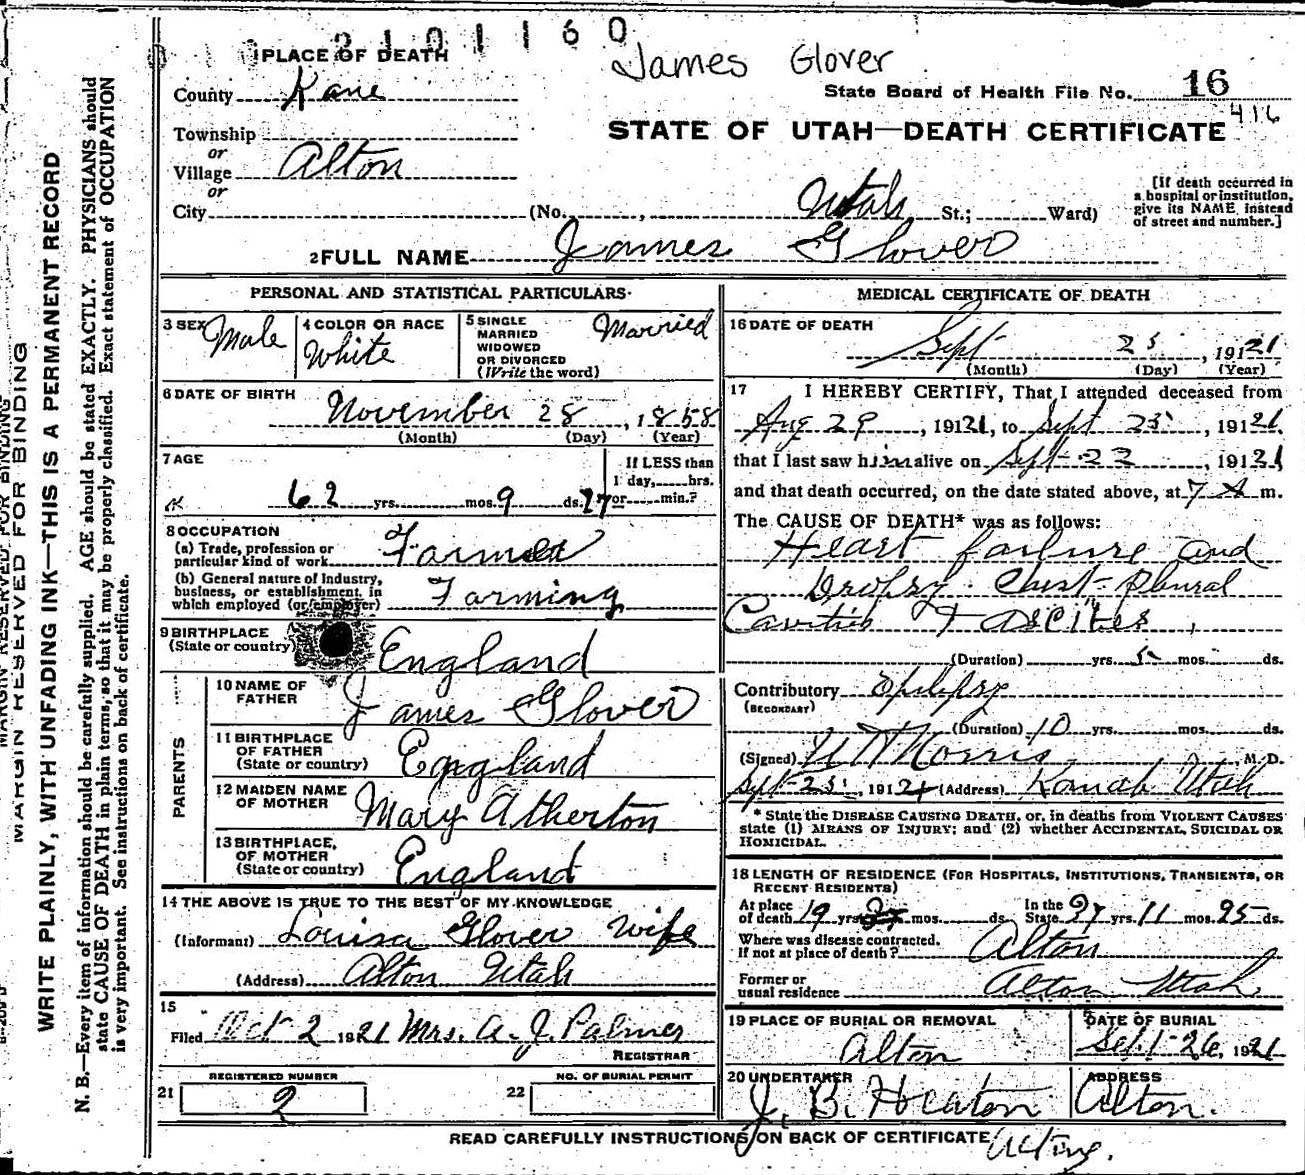 2101160
James Glover
1 PLACE OF DEATH
County Kane
State Board of Health File No. 16
416
Township
or
Village Alton
or
City (No. , Utah St.; Ward)
STATE OF UTAH—DEATH CERTIFICATE
[If death occurred in
a hospital or institution,
give its NAME instead
of street and number.]
2 FULL NAME James Glover
PERSONAL AND STATISTICAL PARTICULARS
3 SEX Male
4 COLOR OR RACE White
5 SINGLE
MARRIED
WIDOWED
OR DIVORCED
(Write the word) Married
6 DATE OF BIRTH
November 28, 1858
(Month) (Day) (Year)
7 AGE
62 yrs. mos. 9 ds. 27
If LESS than
1 day, hrs.
or min.?
8 OCCUPATION
(a) Trade, profession or
particular kind of work Farmer
(b) General nature of Industry,
business, or establishment in
which employed (or employer) Farming
9 BIRTHPLACE
(State or country) England
PARENTS
10 NAME OF
FATHER James Glover
11 BIRTHPLACE
OF FATHER
(State or country) England
12 MAIDEN NAME
OF MOTHER Mary Atherton
13 BIRTHPLACE,
OF MOTHER
(State or country) England
14 THE ABOVE IS TRUE TO THE BEST OF MY KNOWLEDGE
(Informant) Louisa Glover wife
(Address) Alton Utah
15
Filed Oct 2 1921 Mrs. A. J. Palmer
REGISTRAR
REGISTERED NUMBER
21 2
NO. OF BURIAL PERMIT
22
MEDICAL CERTIFICATE OF DEATH
16 DATE OF DEATH
Sept 25, 191 21
(Month) (Day) (Year)
17 I HEREBY CERTIFY, That I attended deceased from
Aug 29, 191 21, to Sept 25, 191 21,
that I last saw him alive on Sept 22, 191 21
and that death occurred, on the date stated above, at 7 A m.
The CAUSE OF DEATH* was as follows:
Heart failure and
Dropsy. Chest-plural
Cavities + ascites,
(Duration) yrs. 5 mos. ds.
Contributory Epilepsy
(SECONDARY)
(Duration) 10 yrs. mos. ds.
(Signed) Norris, M. D.
Sept 25, 191 21 (Address) Kanab Utah
* State the DISEASE CAUSING DEATH, or, in deaths from VIOLENT CAUSES
state (1) MEANS OF INJURY; and (2) whether ACCIDENTAL, SUICIDAL OR
HOMICIDAL.
18 LENGTH OF RESIDENCE (FOR HOSPITALS, INSTITUTIONS, TRANSIENTS, OR
RECENT RESIDENTS)
At place
of death 19 yrs. mos. ds.
In the
State yrs. 11 mos. 25 ds.
Where was disease contracted,
If not at place of death? Alton
Former or
usual residence Alton Utah
19 PLACE OF BURIAL OR REMOVAL
Alton
DATE OF BURIAL
Sept 26, 1921
20 UNDERTAKER
J. B. Heaton
ADDRESS
Alton.
READ CAREFULLY INSTRUCTIONS ON BACK OF CERTIFICATE
Acting.
MARGIN RESERVED FOR BINDING
WRITE PLAINLY, WITH UNFADING INK—THIS IS A PERMANENT RECORD
N. B.—Every item of information should be carefully supplied. AGE should be stated EXACTLY. PHYSICIANS should
state CAUSE OF DEATH in plain terms, so that it may be properly classified. Exact statement of OCCUPATION
is very important. See instructions on back of certificate.